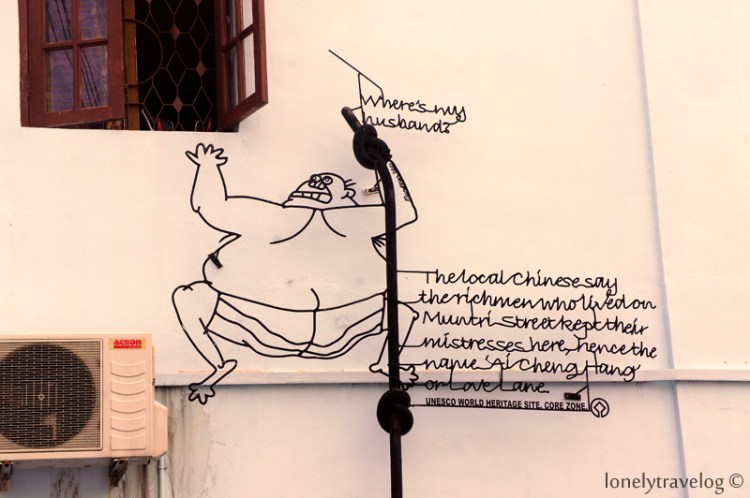 Where's my
husband?
The local Chinese say
the rich men who lived on
Muntri Street kept their
mistresses here, hence the
name 'Ai Cheng Hang'
or Love Lane.
UNESCO WORLD HERITAGE SITE. CORE ZONE.
acson
lonelytravelog ©